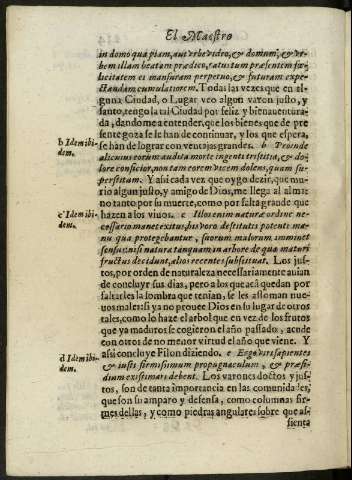 El Maestro
in domo quapiam, aut vrbe video, & domum, & vr-
bem illam beatam prædico, ratus tum præsentem fœ-
licitatem ei mansuram perpetuo, & futuram expe-
ctandam cumulatiorem. Todas las vezes que en el-
guna Ciudad, o Lugar veo algun varon justo, y
santo, tengo la tal Ciudad por feliz y bienauentura-
da, dandome a entender, que los bienes que de pre
sente goza se le han de continuar, y los que espera,
se han de lograr con ventajas grandes. b Proinde
b Idem ibi-
dem.
alicuius eorum audita morte ingenti tristitia, & do-
lore conficior, non tam eorum vicem dolens, quam su-
perstitum. Y assi cada vez que oygo dezir, que mu-
rio algun justo, y amigo de Dios, me llega al alma:
no tanto por su muerte, como por falta grande que
hazen a los viuos. c Illos enim naturæ ordine ne-
c Idem ibi-
dem.
cessario manet exitus, his vero destitutis potenti ma-
nu qua protegebantur, suorum malorum imminet
sensus: nisi natura tanquam ex arbore de qua maturi
fructus decidunt, alios recentes substituat. Los jus-
tos, por orden de naturaleza necessariamente auian
de concluyr sus dias, pero a los que acá quedan por
faltarles la sombra que tenían, se les assoman nue-
uos males: si ya no prouee Dios en su lugar de otros
tales, como lo haze el arbol que en vez de los frutos
que ya maduros se cogieron el año passado, acude
con otros de no menor virtud el año que viene. Y
assi concluye Filon diziendo. e Ergo viri sapientes
d Idem ibi-
dem.
& iusti firmissimum propugnaculum, & præsi-
dium existimari debent. Los varones doctos y jus-
tos, son de tanta importancia en las comunidades,
que son su amparo y defensa, como columnas fir-
mes dellas, y como piedras angulares sobre que as-
sienta